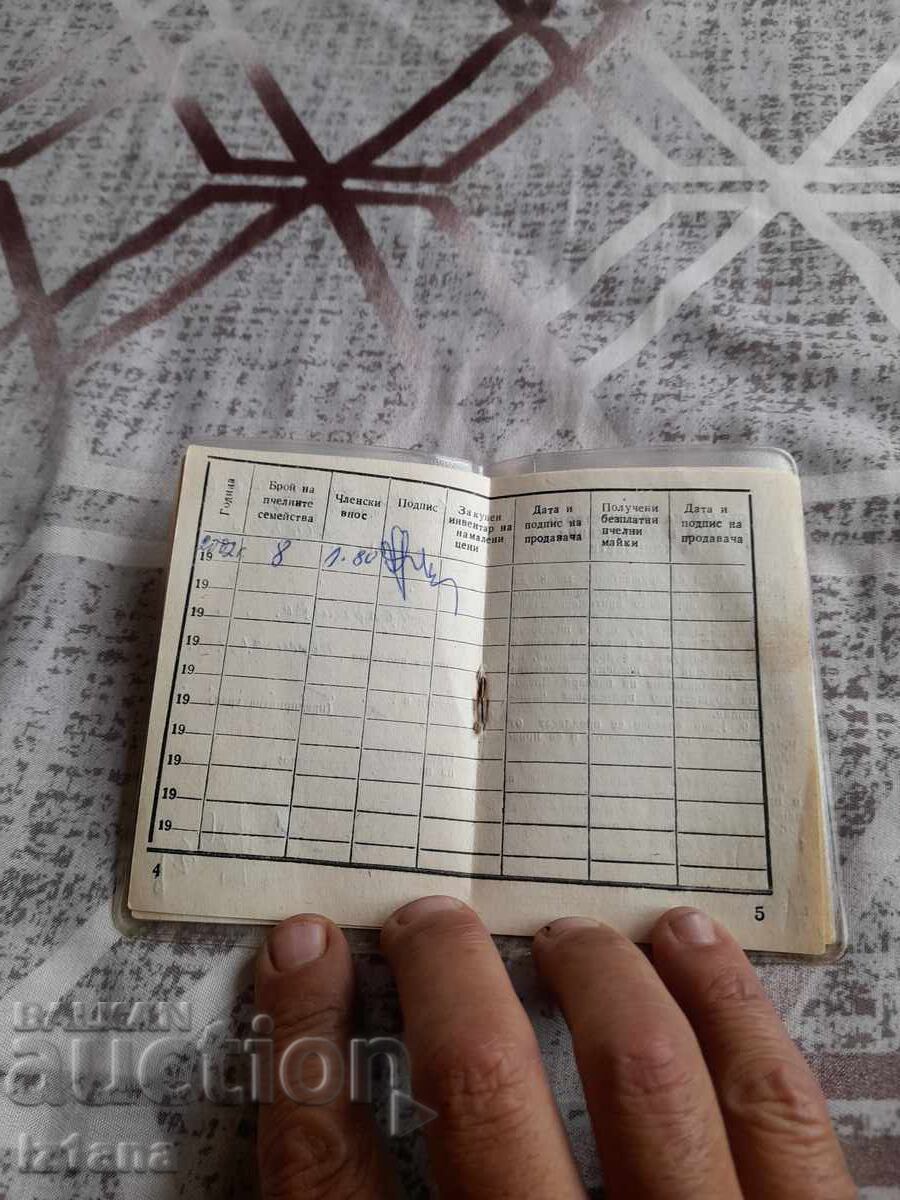 Година
Брой на
пчелните
семейства
Членски
внос
Подпис
Закупен
инвентар на
намалени
цени
Дата и
подпис на
продавача
Получени
безплатни
пчелни
майки
Дата и
подпис на
продавача
19 2002г. 8 1.80
19
19
19
19
19
19
19
19
19
4
5
BALKAN
auction
iz1ana